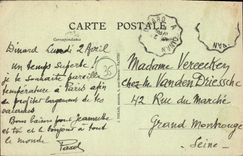 CARTE POSTALE
Correspondance
Dinard Lundi 2 Avril
Un temps superbe !
je te souhaite pareille
température à Paris afin
de profiter largement de tes
vacances
Bons baisers pour Jeannette
et toi et le bonjour à tout
le monde.
35
Madame Vereecken
chez Mr Vanden Driessche
42 Rue du Marché
Grand Montrouge
Seine
DINARD A
NAN